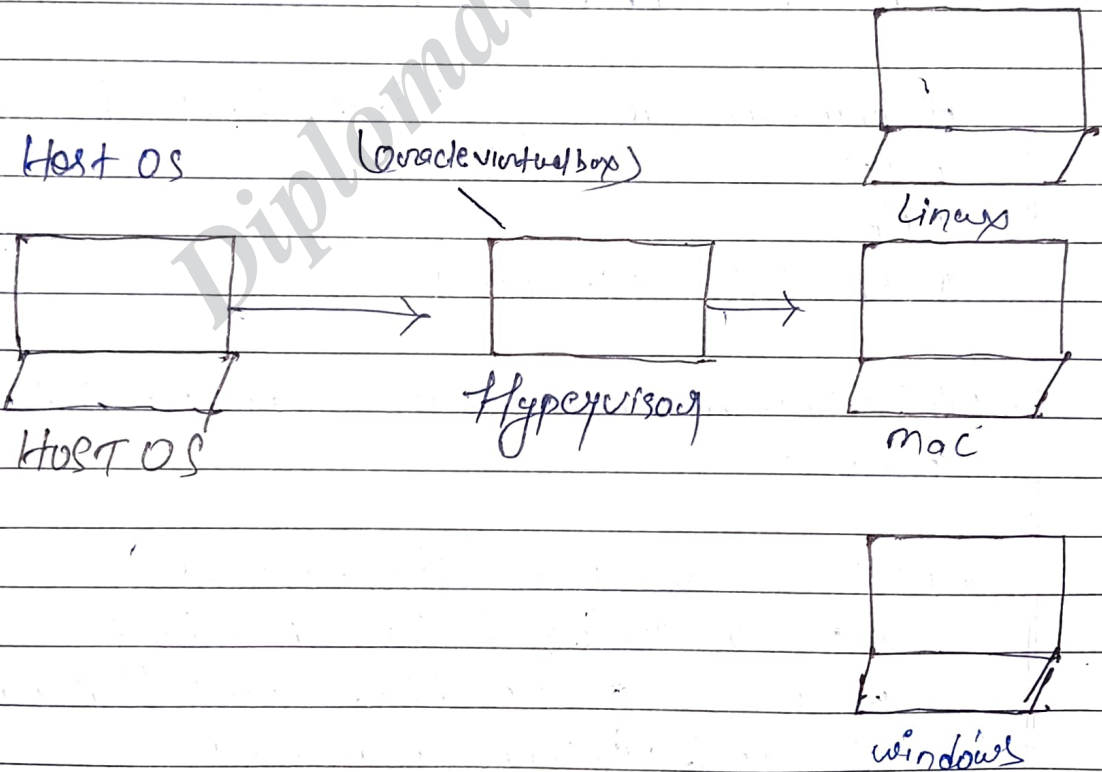 Diploma
Host OS
(Oracle virtual box)
Linux
HOST OS
Hypervisor
Mac
windows